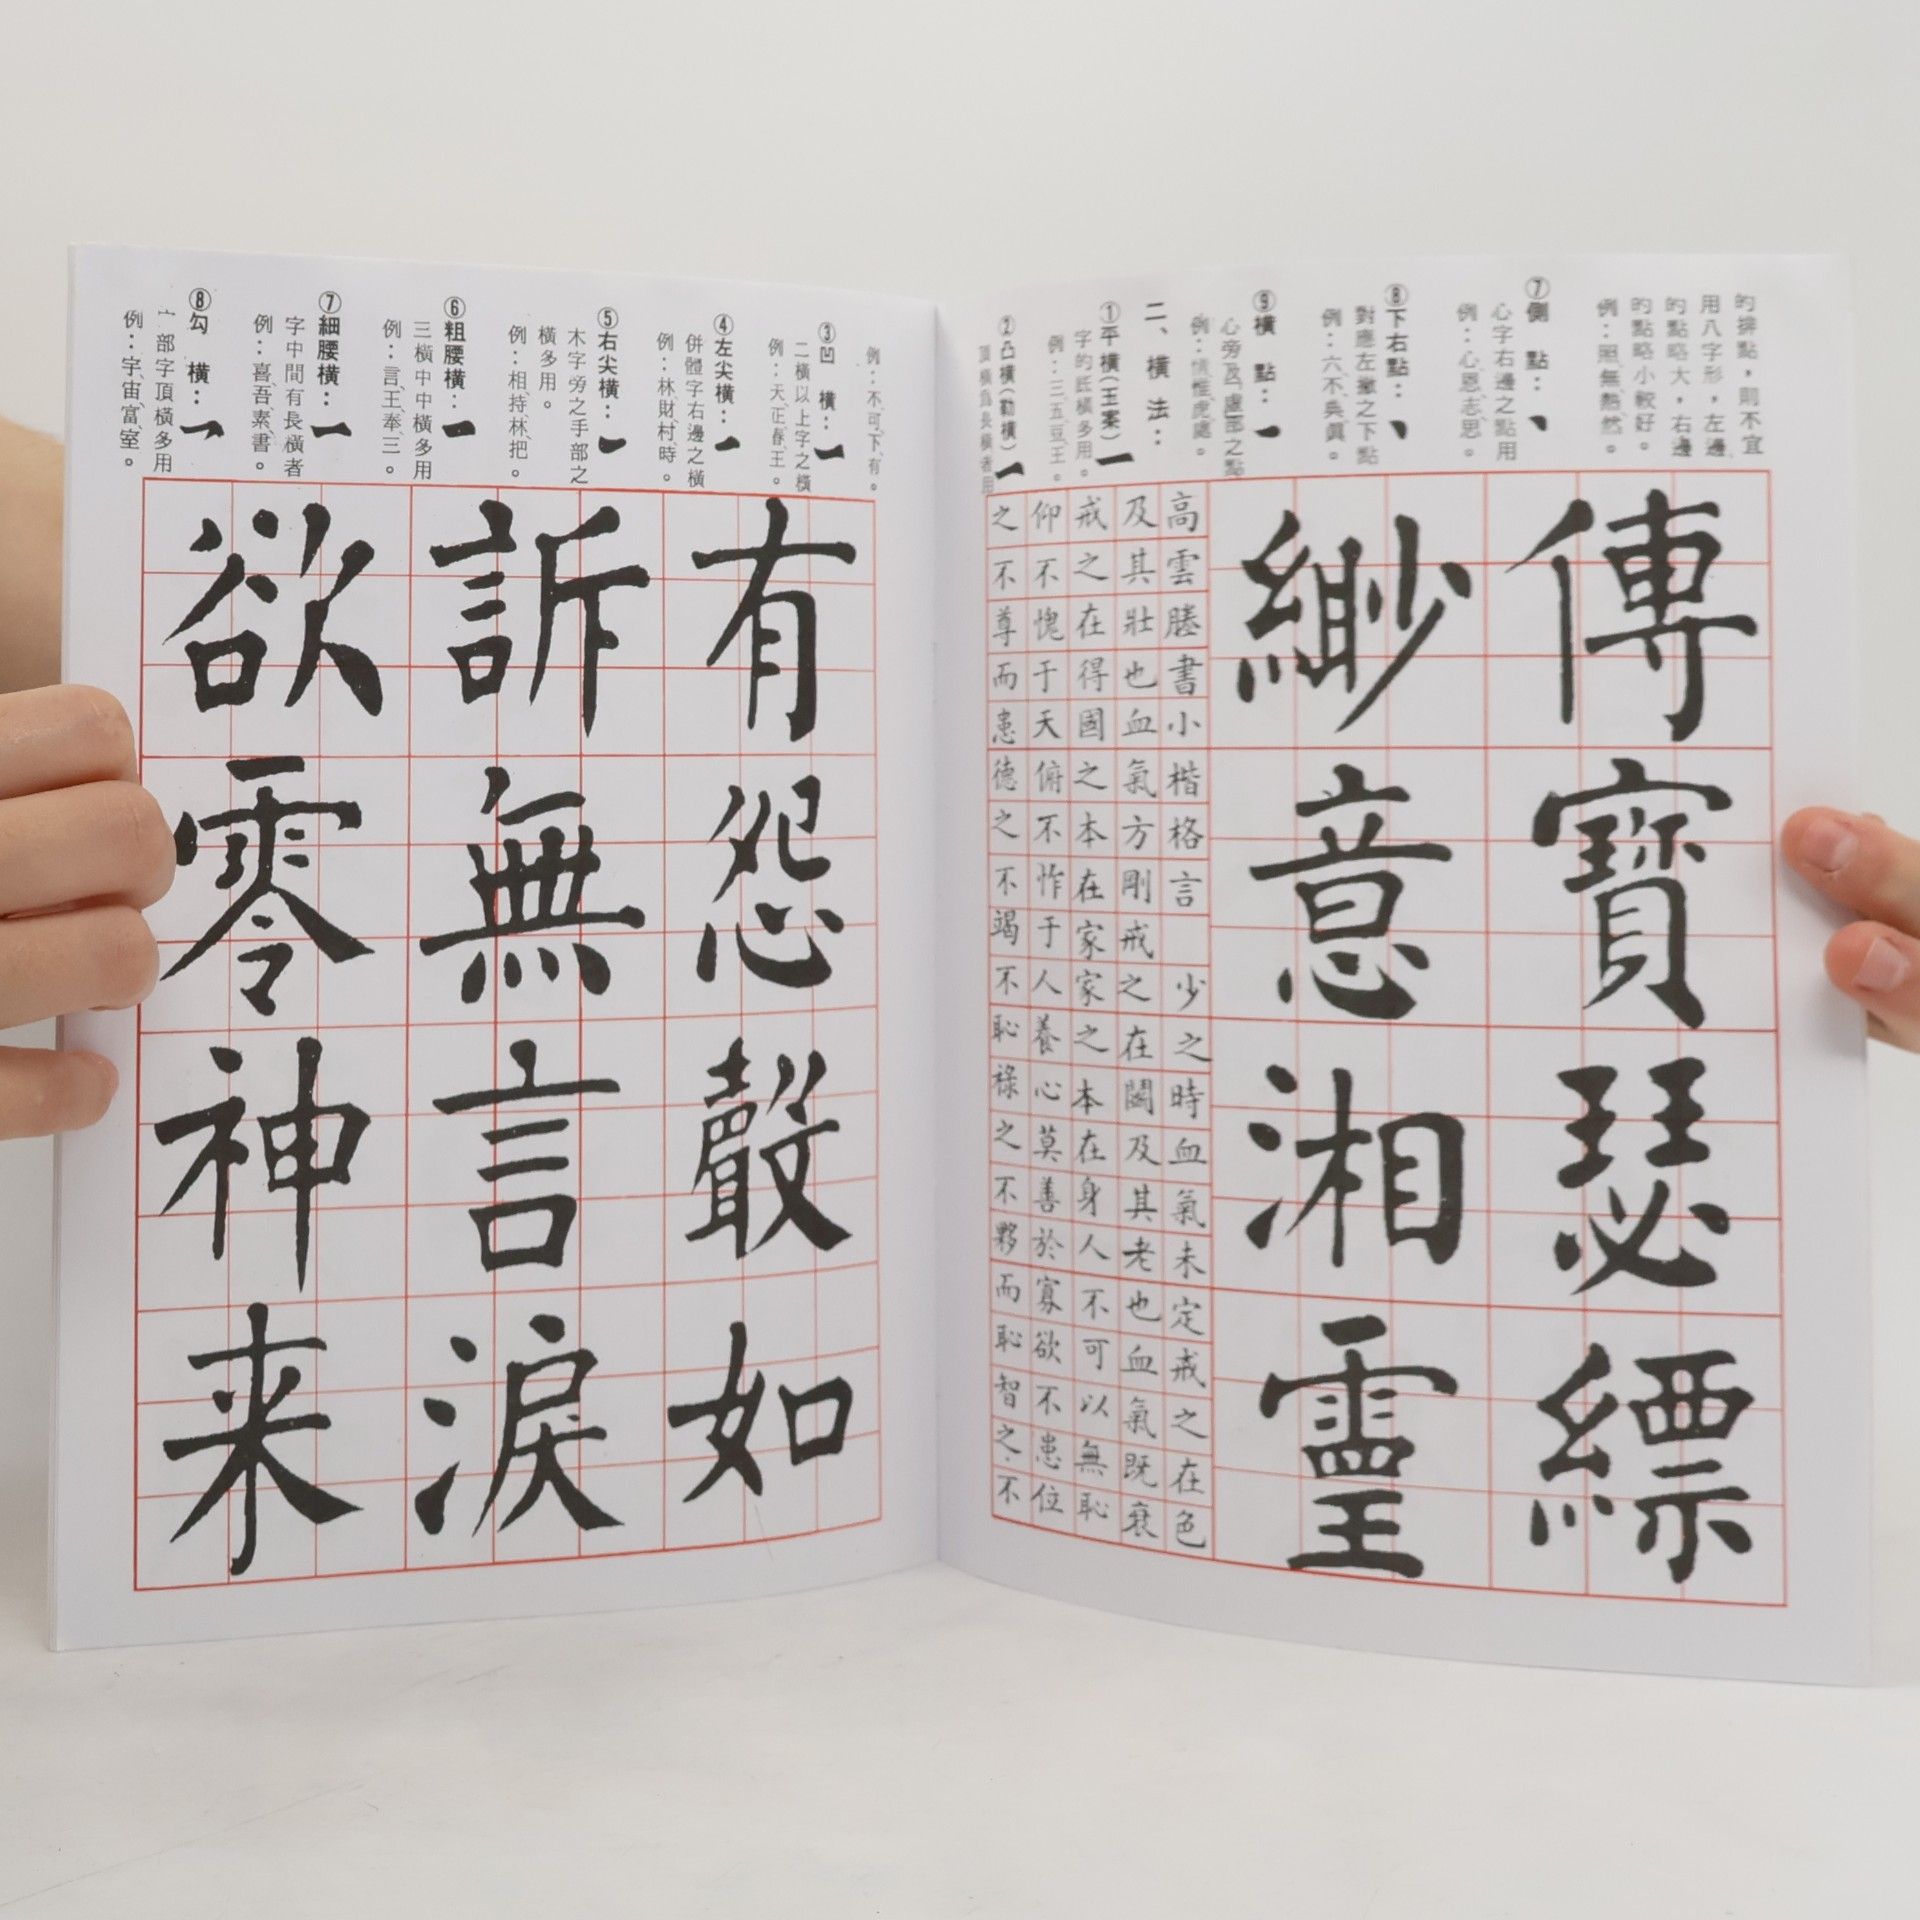 的排點，則不宜
用八字形，左邊
的點略大，右邊
的點略小較好。
例：照、無、熱、然。
⑦側　點：
心字右邊之點用
例：心、恩、志、思。
⑧下右點：
對應左撇之下點
例：六、不、典、眞。
⑨橫　點：
心旁及虍部之點
例：情、惟、虎、處。
二、橫法：
①平橫（玉案）
字的底橫多用。
例：三、五、豆、王。
②凸橫（勒橫）
頂橫爲長橫者用
傳寶瑟縹
緲意湘靈
高雲塍書小楷格言　少之時血氣未定戒之在色
及其壯也血氣方剛戒之在鬪及其老也血氣既衰
戒之在得國之本在家家之本在身人不可以無恥
仰不愧于天俯不怍于人養心莫善於寡欲不患位
之不尊而患德之不竭不恥祿之不夥而恥智之不
例：不、可、下、有。
③凹　橫：
二橫以上字之橫
例：天、正、春、王。
④左尖橫：
併體字右邊之橫
例：林、財、村、時。
⑤右尖橫：
木字旁之手部之
橫多用。
例：相、持、林、把。
⑥粗腰橫：
三橫中中橫多用
例：言、王、奉、三。
⑦細腰橫：
字中間有長橫者
例：喜、吾、素、書。
⑧勾　橫：
宀部字頂橫多用
例：宇、宙、富、室。
有怨聲如
訴無言淚
欲零神来